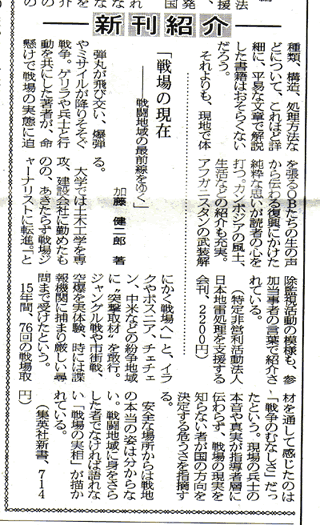 新刊紹介
種類、構造、処理方法な
どについて、これほど詳
細に、平易な文章で解説
した書籍はおそらくない
だろう。
それよりも、現地で体
を張るOBたちの生の声
から伝わる復興にかけた
純粋な思いが読者の心を
打つ。カンボジアの風土、
生活などの紹介も充実。
アフガニスタンの武装解
除監視活動の模様も、参
加当事者の言葉で紹介さ
れている。
(特定非営利活動法人
日本地雷処理を支援する
会刊、2200円)
「戦場の現在」
――戦闘地域の最前線をゆく
加藤 健二郎 著
弾丸が飛び交い、爆弾
やミサイルが降りそそぐ
戦争。ゲリラや兵士と行
動を共にした著者が、命
懸けで戦場の実態に迫
る。
大学では土木工学を専
攻、建設会社に勤めたも
のの、あきたらず戦場ジ
ャーナリストに転進。「と
にかく戦場へ」と、イラ
クやボスニア、チェチェ
ン、中米などの紛争地域
に“突撃取材”を敢行。
ジャングル戦や市街戦、
空爆を実体験、時には諜
報機関に捕まり厳しい尋
問まで受けたという。
15年間、76回の戦場取
材を通して感じたのは
「戦争のむなしさ」だっ
たという。現場の兵士の
本音や真実が指導者層に
伝わらず、戦場の現実を
知らない者が国の方向を
決定する危うさを指摘す
安全な場所からは戦地
の本当の姿は分からな
い。戦闘地域に身をさら
した者でなければ語れな
い「戦場の実相」が描か
れている。
(集英社新書、714